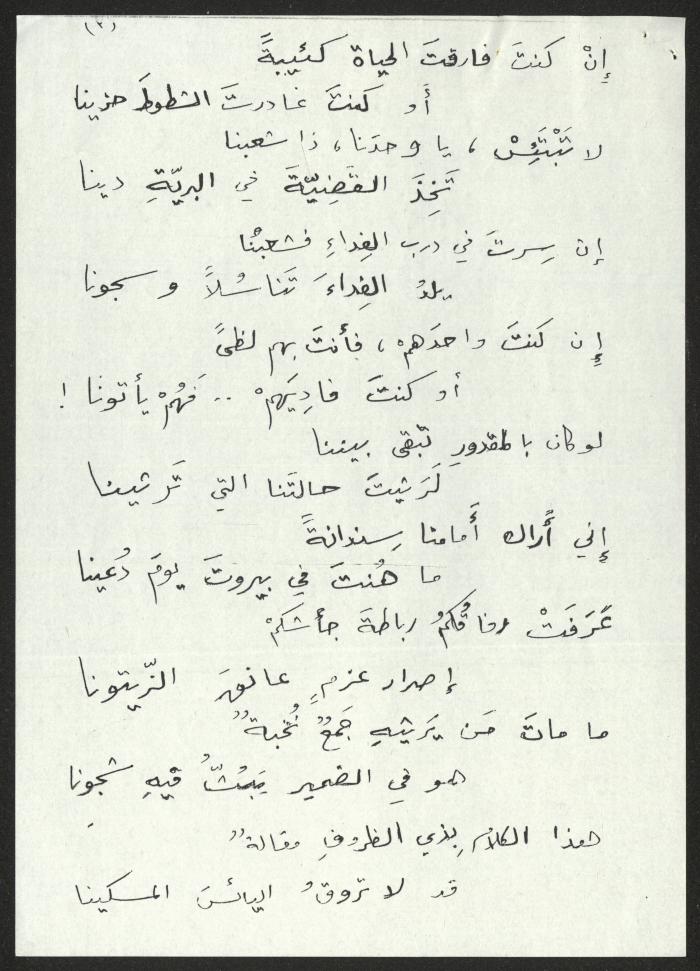 (٢)
إنْ كنتَ فارقتَ الحياة كئيبةً
أَو كنتَ غادرتَ الشطوطَ حزينا
لا تَبْتَئِسْ ، يا وحدَنا ، ذا شعبنا
تَخِذَ القَضِيّةَ في البريّةِ دينا
إن سِرتَ في درب الفِداءِ فشعبُنا
يلدُ الفِداءَ تَناسُلاً و سجونا
إن كنتَ واحدَهمْ ، فأنتَ بهم لظىً
أو كنتَ فادِيَهمْ .. فَهُمْ يأتونَا !
لو كان بالمقدورِ تبقى بيننا
لَرَثيتَ حالتَنا التي تَرثينا
إني أَراك أَمامنا سِندانةً
ما هُنتَ في بيروتَ يومَ دُعينا
عَرَفَتْ رفاقُكمُ رباطةَ جأشكَمْ
إصرار عزمٍ عانقَ الزّيتونا
ما ماتَ مَن يَرثيهِ جَمعٌ نُخبةٌ
هو في الضمير يَبُثُّ فيهِ شجونا
هذا الكلامُ بِذي الظروفِ مقالةٌ
قد لا تروقُ اليائسَ المسكينا